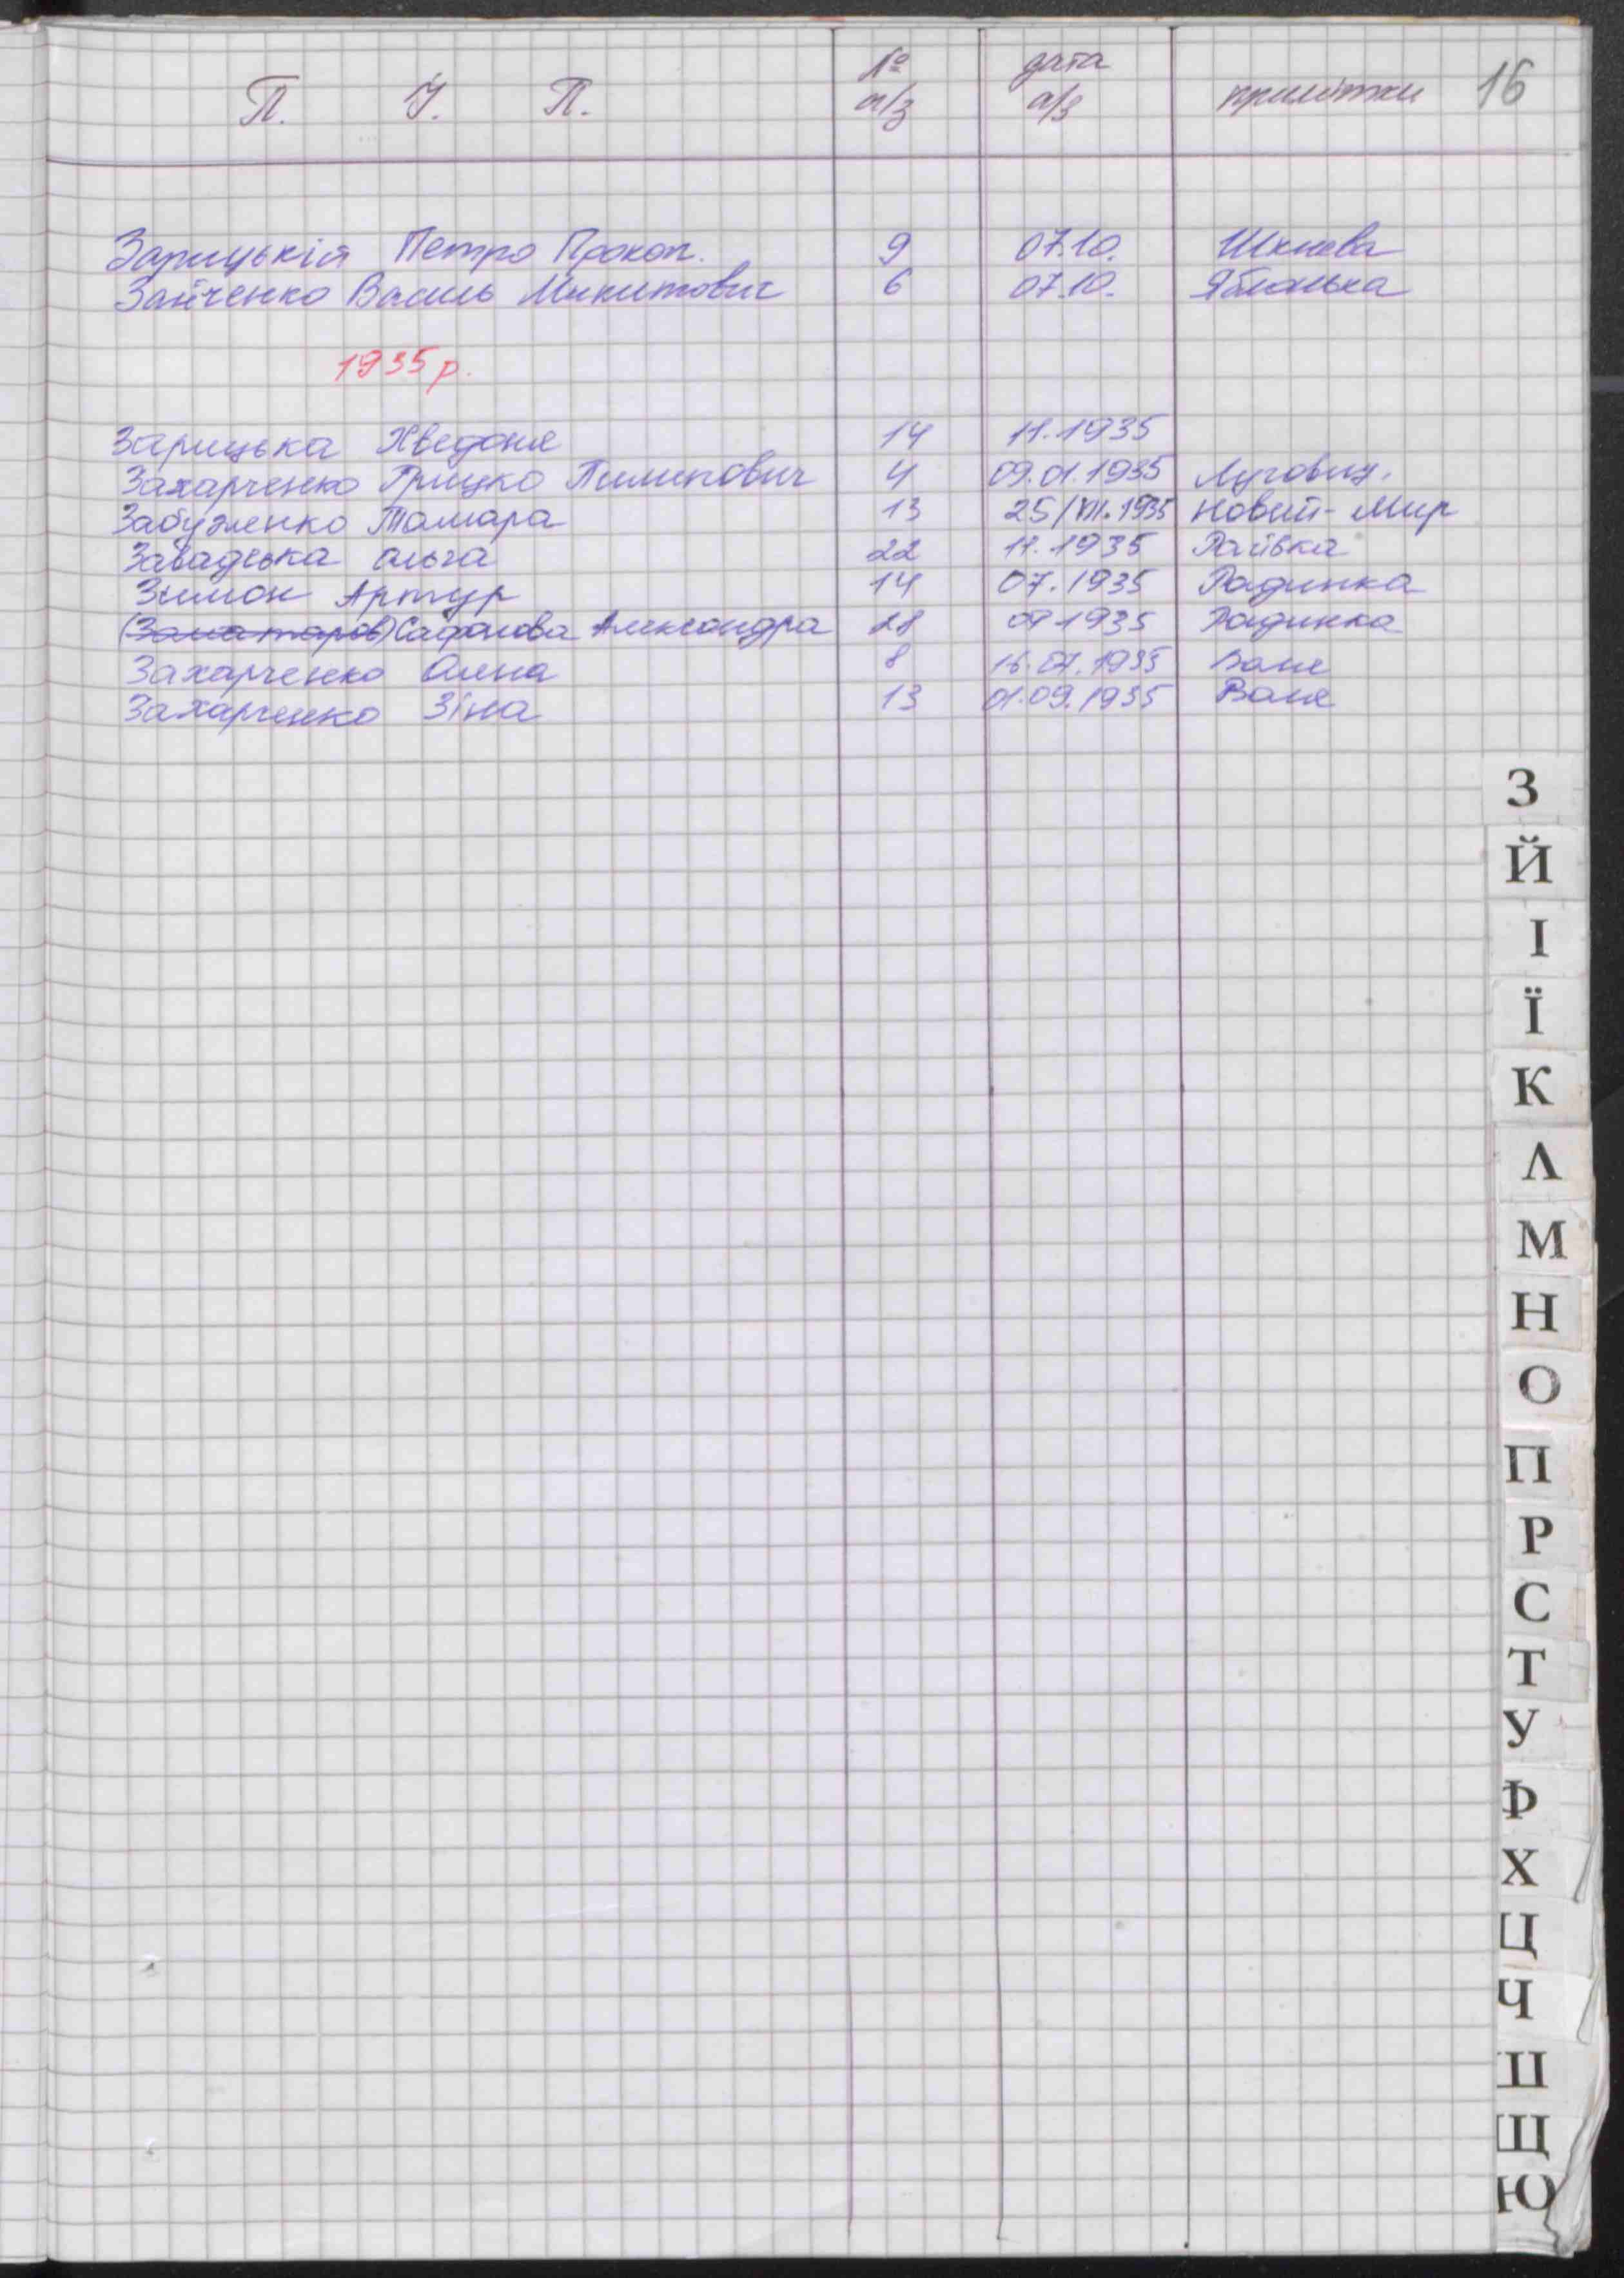 П. І. П. № а/з дата а/з примітки 16
Зарицькій Петро Прокоп. 9 07.10. Шкнева
Зайченко Василь Микитович 6 07.10. Яблонька
1935 р.
Зарицька Хведоня 14 11.1935
Захарченко Грицко Пилипович 4 09.01.1935 Луговиц.
Забуженко Тамара 13 25/VII.1935 Новий-Мир
Завадська Ольга 22 11.1935 Рагівка
Зимон Артур 14 07.1935 Радинка
Сафонова Александра 28 09 1935 Радинка
Захарченко Олена 8 16.07.1935 Воля
Захарченко Зіна 13 01.09.1935 Воля
З
Й
І
Ї
К
Л
М
Н
О
П
Р
С
Т
У
Ф
Х
Ц
Ч
Ш
Щ
Ю